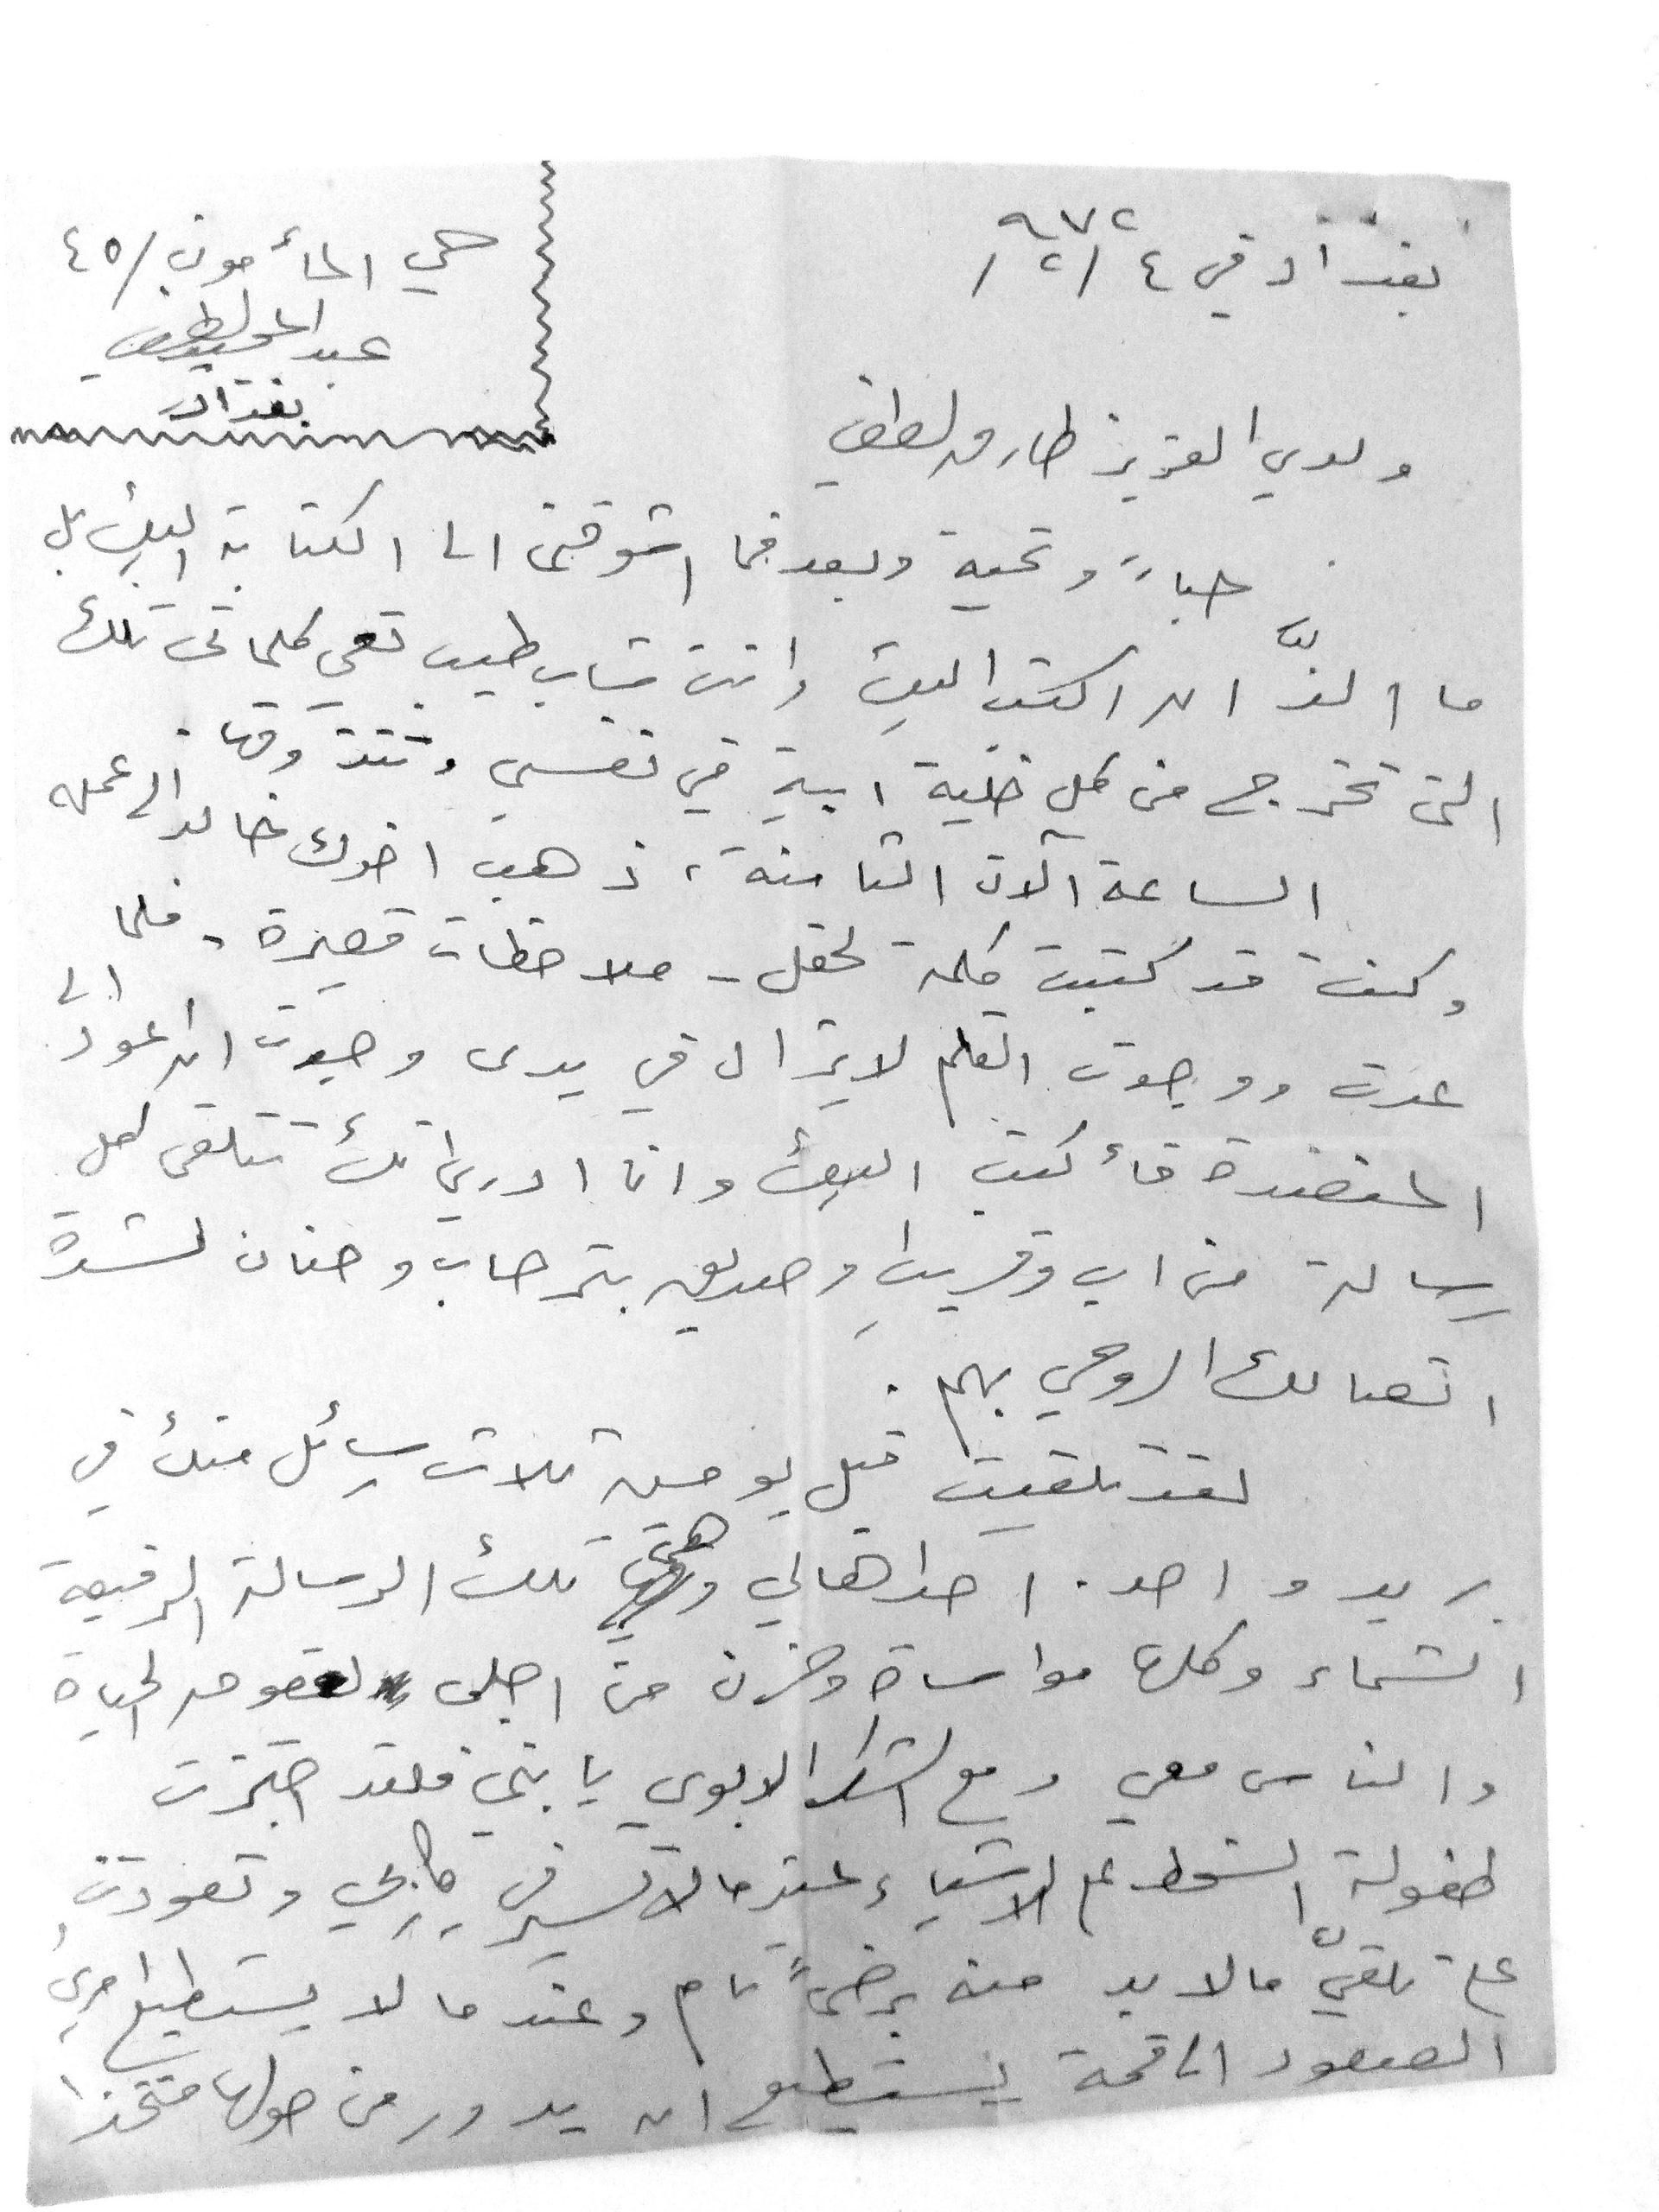 بغداد في ٤/٢/٩٧٢
حي المأمون/٤٥
عبد المجيد لطفي
بغداد
ولدي العزيز طارق لطفي
حباً وتحية وبعد فما اشوقني الى الكتابة اليك بل
ما الذّ ان اكتب اليك وانت شاب طيب تعي كلماتي تلك
التي تخرج من كل خلية ابية في نفسي وتتذوقها.
الساعة الآن الثامنة، ذهب اخوك خالد الى عمله
وكنت قد كتبت كلمة لحقل - ملاحظات قصيرة - فلما
عدت ووجدت القلم لا يزال في يدى وجدت ان اعود الى
المنضدة فأكتب اليك وانا ادري انك تتلقى كل
رسالة من اب وقريب وصديق بترحاب وحنان لشدة
اتصالك الروحي بهم.
لقد تلقيت قبل يومين ثلاث رسائل منك في
بريد واحد. احداها لي وهي تلك الرسالة الرقيقة
الشماء وكلها مواساة وحزن من اجلى لعقوق الحياة
والناس معي ومع الشكر الابوي يا بني فلقد اجتزت
طفولة السخط على الاشياء عندما لا تسير في ركابي وتعودت
على تلقيّ مالابد منه برضىً تام وعندما لا يستطيع امرئ
الصعود الى قمة يستطيع ان يدور من حولها متخذا